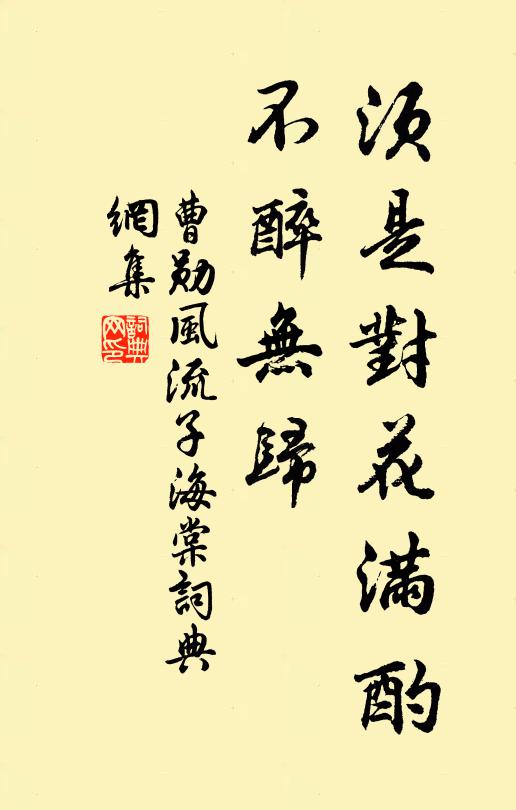 須是對花滿酌
不醉無歸
曹勛風流子海棠詞典
網集
詞典
网印